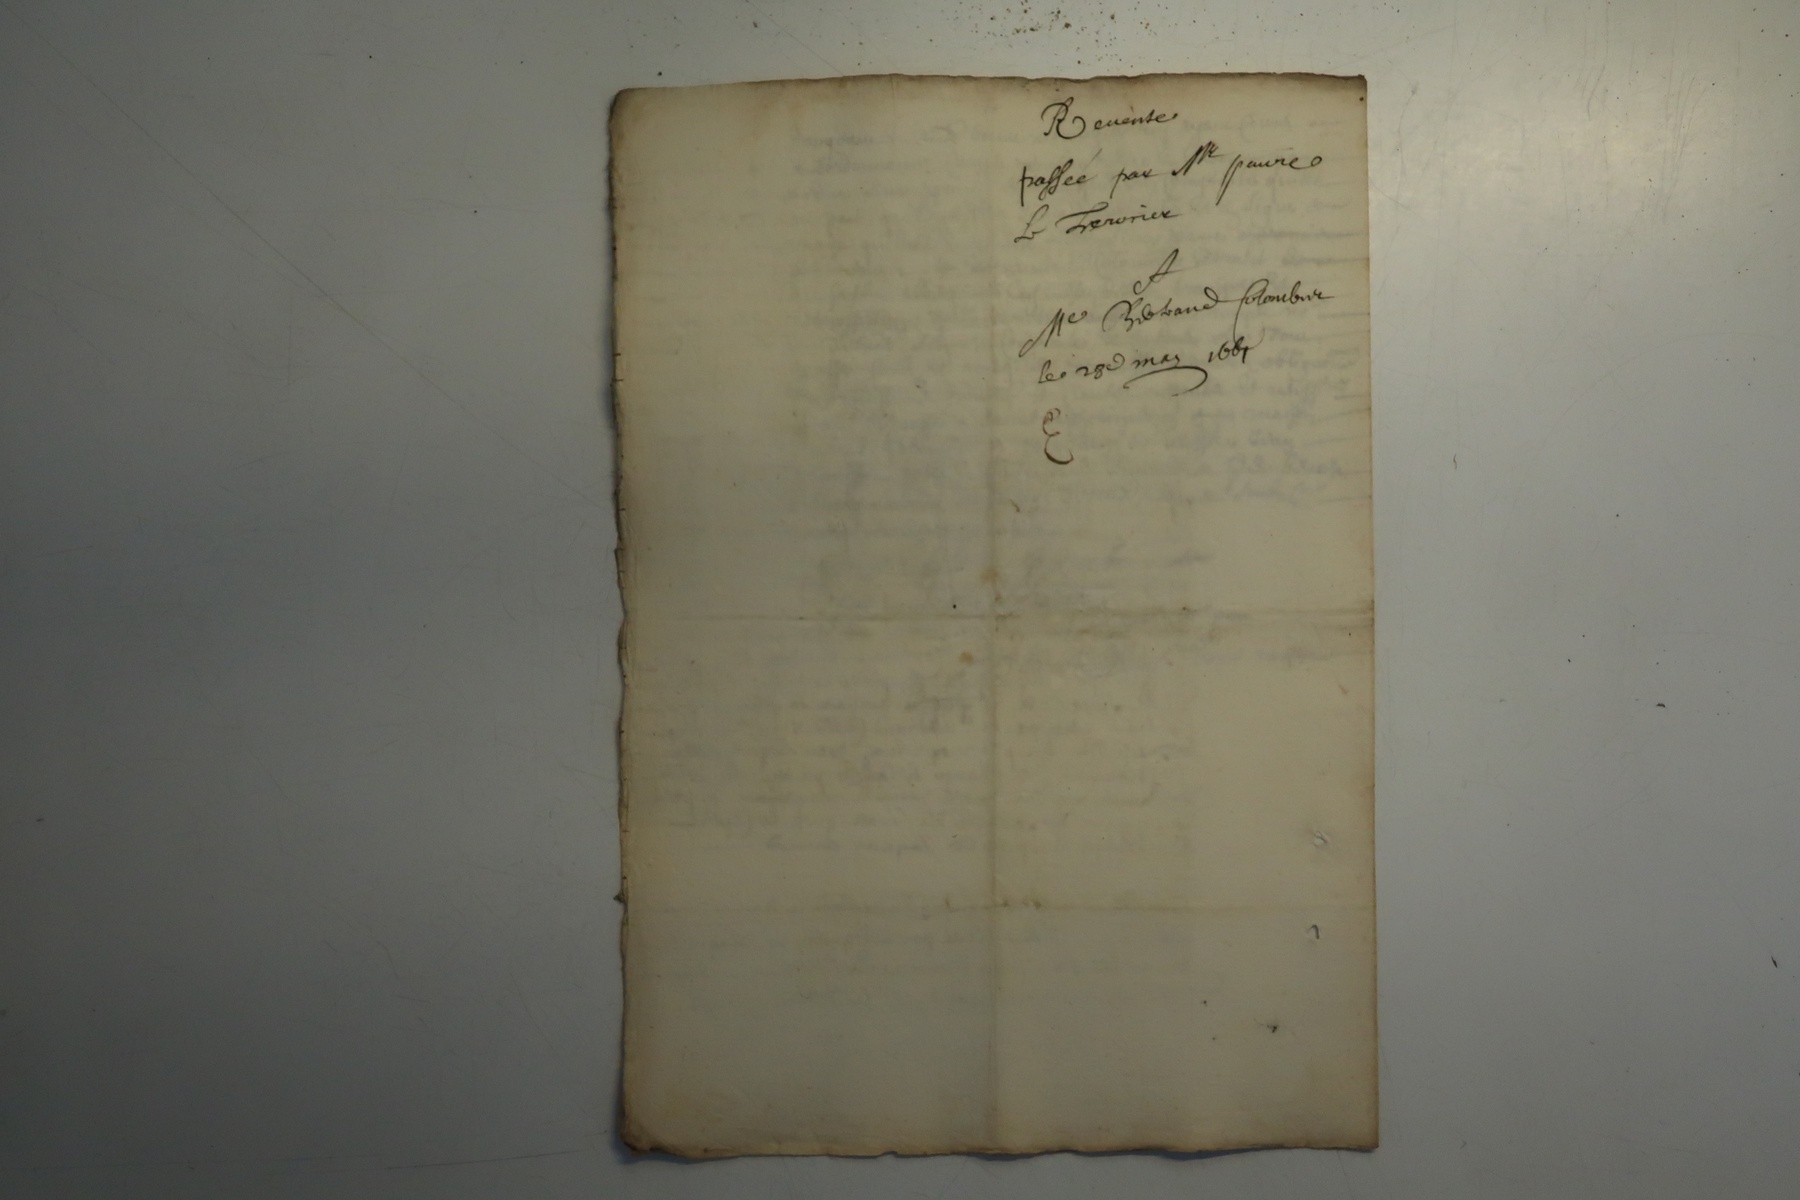 Reuente
passée par Mr faure
le Tresorier
A
Me Bertrand Colombier
le 28e may 1661
E